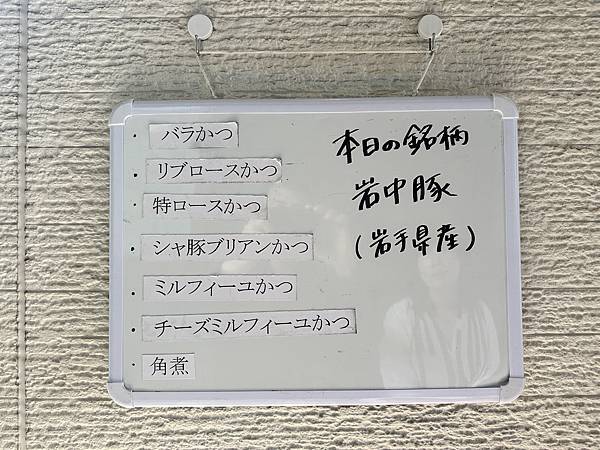 ・バラかつ
・リブロースかつ
・特ロースかつ
・シャ豚ブリアンかつ
・ミルフィーユかつ
・チーズミルフィーユかつ
・角煮
本日の銘柄
岩中豚
(岩手県産)